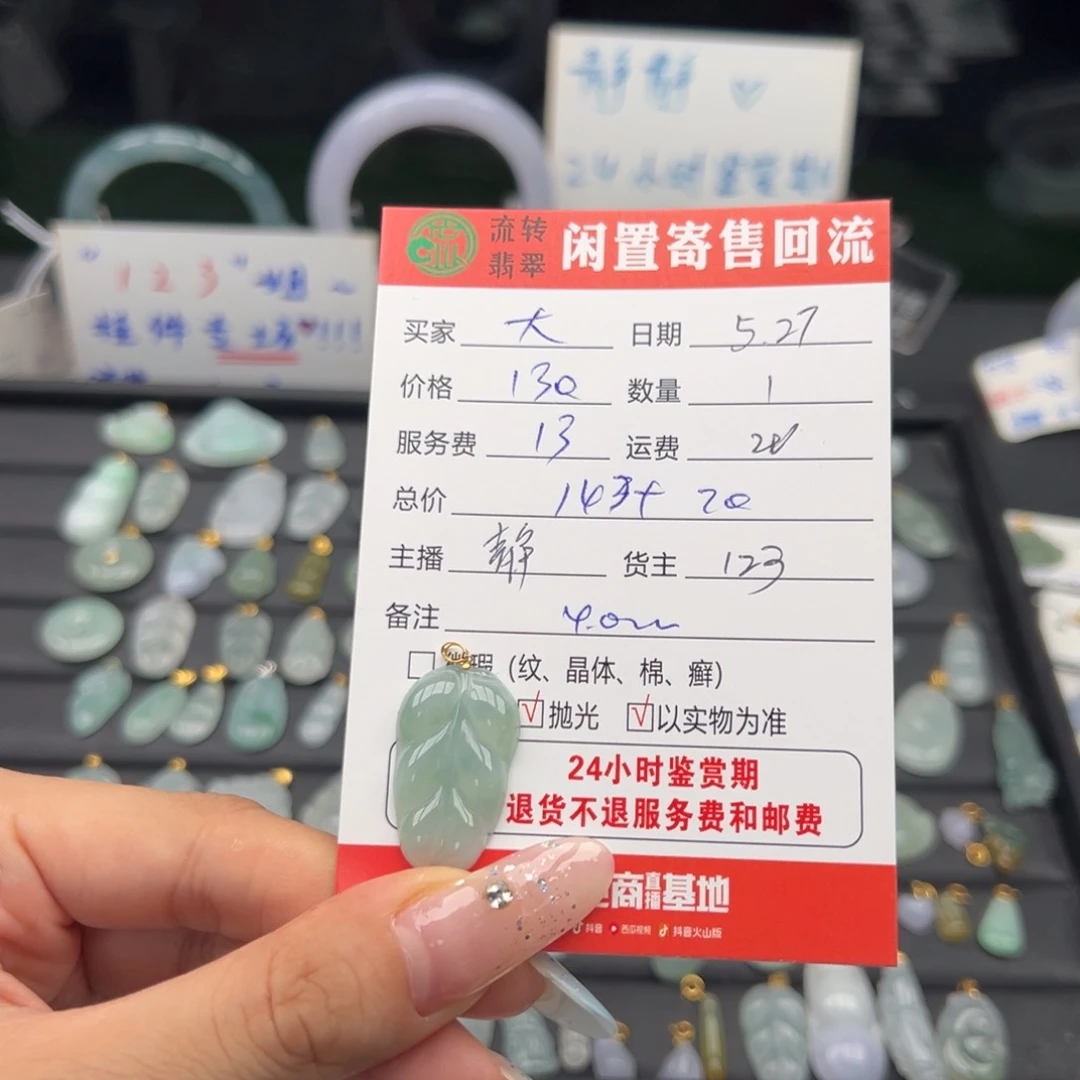 静静
24小时鉴赏期
"123"姐~
挂件专场!!!
流转
翡翠
闲置寄售回流
买家 大 日期 5.27
价格 130 数量 1
服务费 13 运费 20
总价 143+ 20
主播 静 货主 123
备注
瑕 (纹、晶体、棉、癣)
√抛光 √以实物为准
24小时鉴赏期
退货不退服务费和邮费
商直播基地
抖音 西瓜视频 抖音火山版